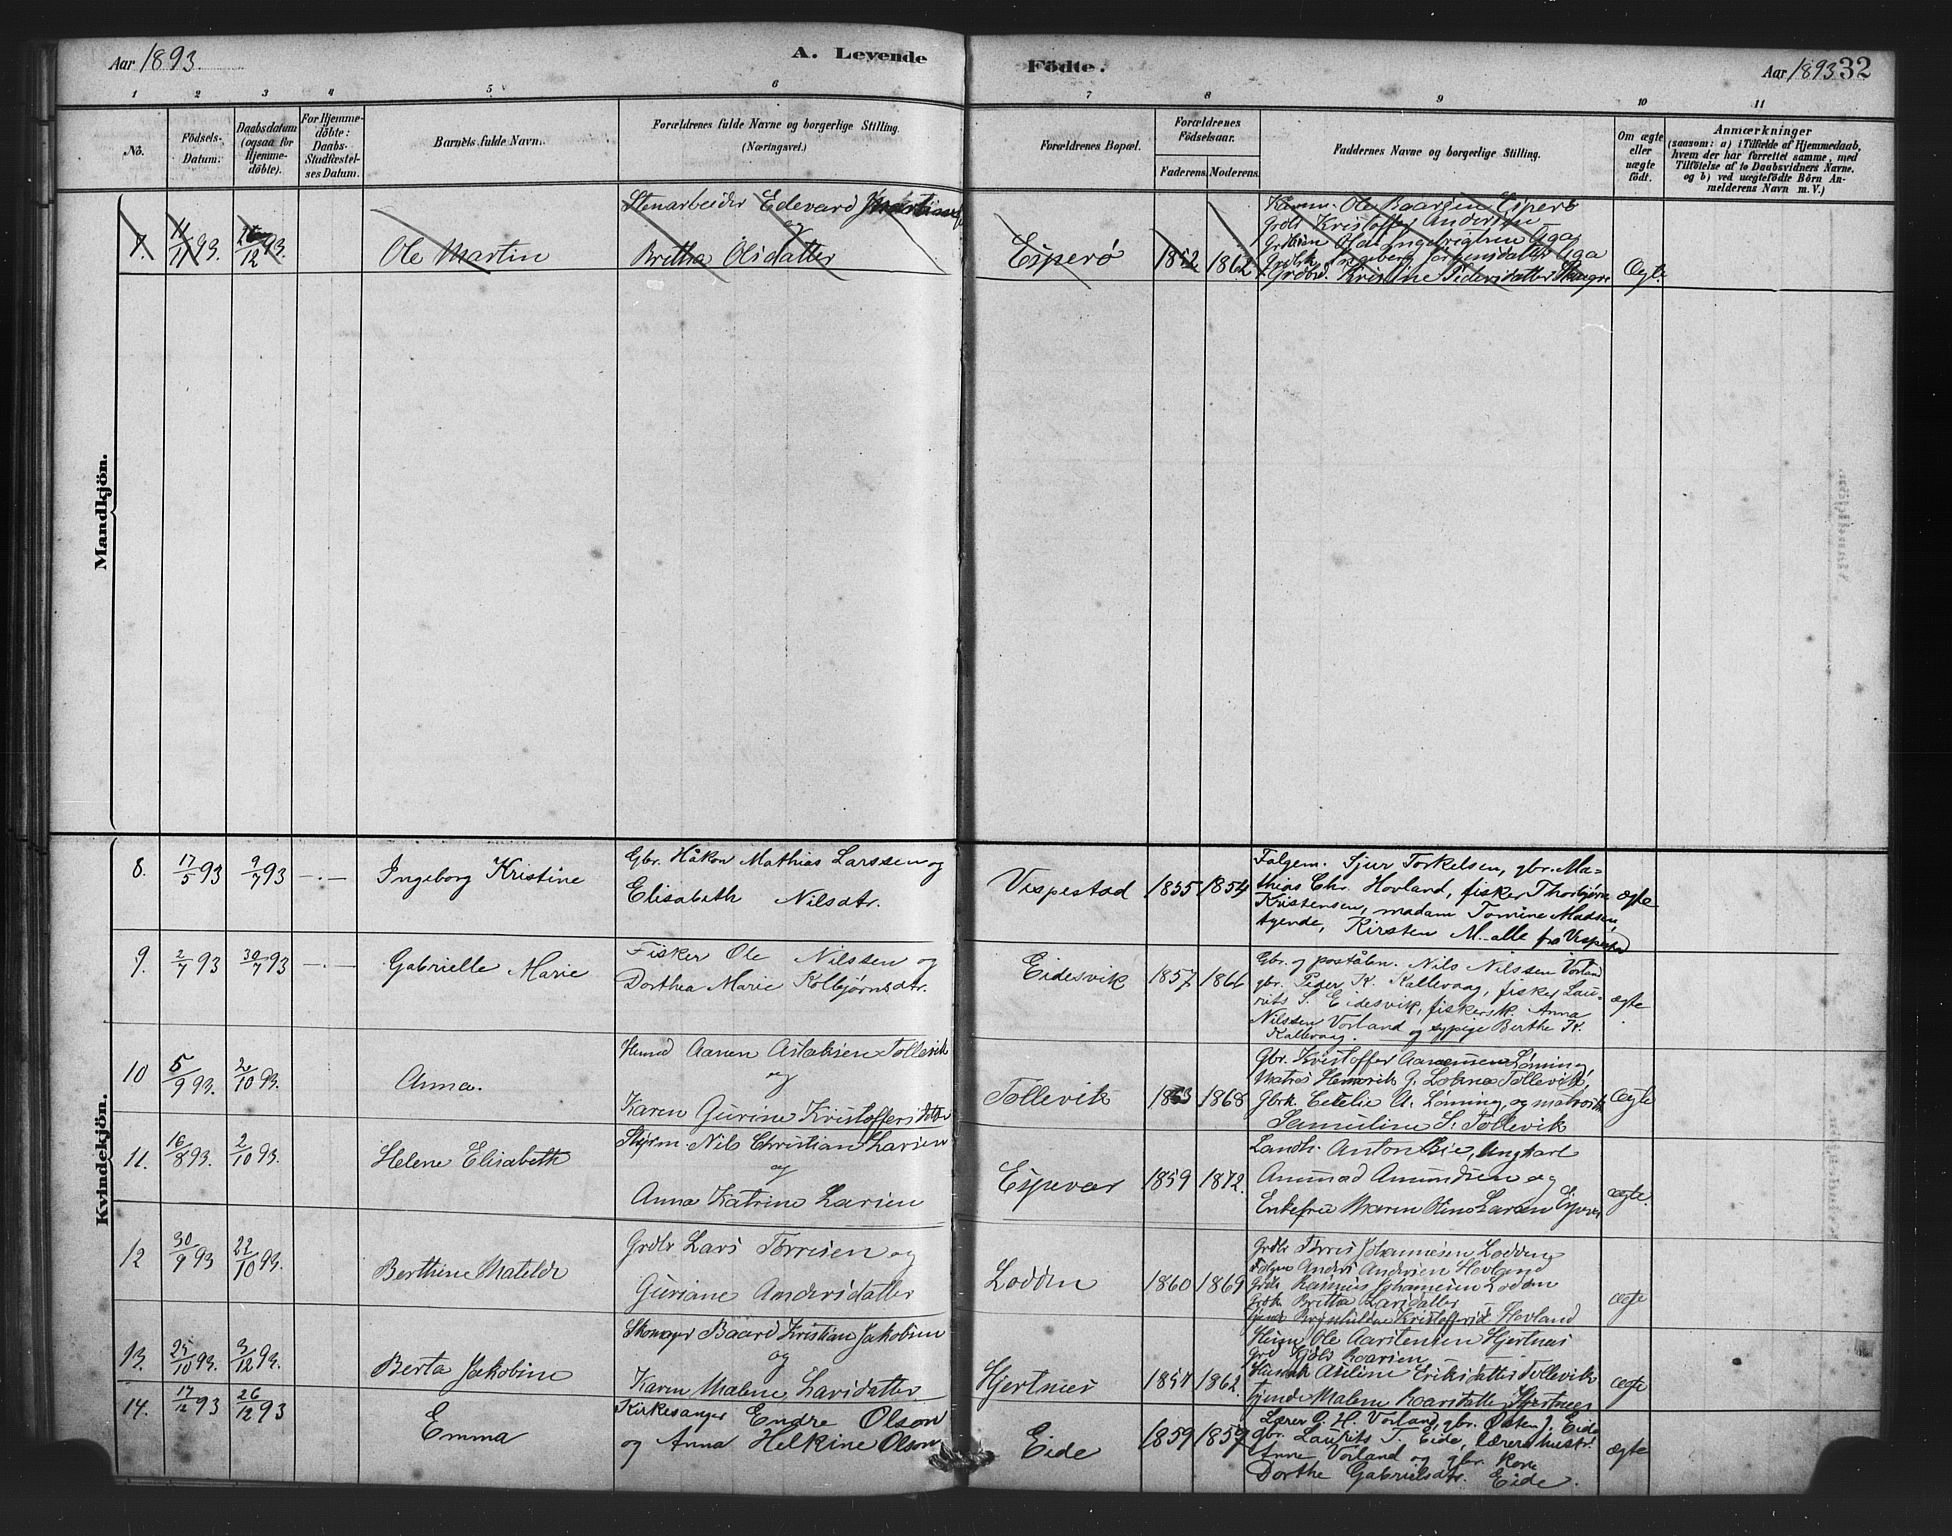 Aar 1893.
A. Levende
Födte.
Aar 1893 32
1 2 3 4 5 6 7 8 9 10 11
No.
Födsels-
Datum.
Daabsdatum
(ogsaa for
Hjemme-
döbte).
For Hjemme-
döbte:
Daabs-
Stadfæstel-
ses Datum.
Barnets fulde Navn.
Forældrenes fulde Navne og borgerlige Stilling.
(Næringsvei.)
Forældrenes Bopæl.
Forældrenes
Födselsaar.
Faderens. Moderens.
Faddernes Navne og borgerlige Stilling.
Om ægte
eller
uægte
födt.
Anmærkninger
(saasom: a) i Tilfælde af Hjemmedaab,
hvem der har forrettet samme, med
Tilföielse af to Daabsvidners Navne,
og b) ved uægtefödte Börn An-
melderens Navn m. V.)
Mandkjön.
11/11 93. 26/12 93.
Ole Martin
Stenarbeider Edevard
og
Britha Olsdatter
Esperø
1852 1862
Ole Baardsen Esperø
Grdbr Kristoffer Andersen
Kristine Pedersdatter
Ægte
Kvindekjön.
8. 17/5 93 9/7 93 -.-
Ingeborg Kristine
Gbr. Håkon Mathias Larssen og
Elisabeth Nilsdtr.
Vispestad
1855 1854
Folgem. Sjur Torkelsen, gbr. Ma-
thias Chr. Hovland, fisker Thorbjørn
Kristensen, madam Tomine Madsen,
tyende, Kirsten M. alle fra Vispestad
ægte
9. 2/7 93 30/7 93 -.-
Gabrielle Marie
Fisker Ole Nilssen og
Dorthea Marie Kolbjørnsdtr.
Eidesvik
1857 1866
Gbr. og poståbn. Nils Nilssen Vorland
gbr. Peder K. Kallevaag, fisker Lau-
rits S. Eidesvik, fiskersk. Anna
Nilssen Vorland og sypige Berthe K.
Kallevaag.
ægte
10 5/9 93. 2/10 93.
Anna.
Aanen Aslaksen Tollevik
og
Karen Gurine Kristoffersdatter
Tollevik
1863 1868
Gbr. Kristoffer Aanensen Lønning,
Matros Hemrik G. Tollevik,
Gbrk. Cecelie A. Lønning, og
Samuline S. Tollevik
Ægte
11. 16/8 93. 2/10 93.
Helene Elisabeth
Styrm. Nils Christian Larsen
og
Anna Katrine Larsen
Espevær
1859 1872.
Landh. Anton Bie, Ungkarl
Amund Amundsen og
Enkefru Maren Larsen Espevær
ægte
12 30/9 93 22/10 93.
Berthine Matilde
Grdbr Lars Torrisen og
Guriane Andersdatter
Lodden
1860 1869
Grdbr Torris Johannesen Lodden
Anders Andersen Hovland
Grdbr Rasmus Johannesen Lodden
Britha Larsdatter
Brynhildine Kristoffersd. Hovland
ægte
13. 25/10 93. 3/12 93.
Berta Jakobine
Skomager Baard Kristian Jakobsen
og
Karen Malene Larsdatter
Hjertnes
1857 1862.
Ole Aarstensen Hjertnes
Aseline Eriksdatter Tollevik
tjende Malene Hjertnes
ægte
14. 17/12 93 26/12 93
Emma
Kirkesanger Endre Olson
og Anna Helkine Olson
Eide
1859 1859
Lærer O. H. Vorland, gbr. Østen J. Eide
gbr. Laurits T. Eide, lærers hustr.
Anne Vorland og gbr. kone
Dorthe Gabrielsdtr. Eide.
ægte